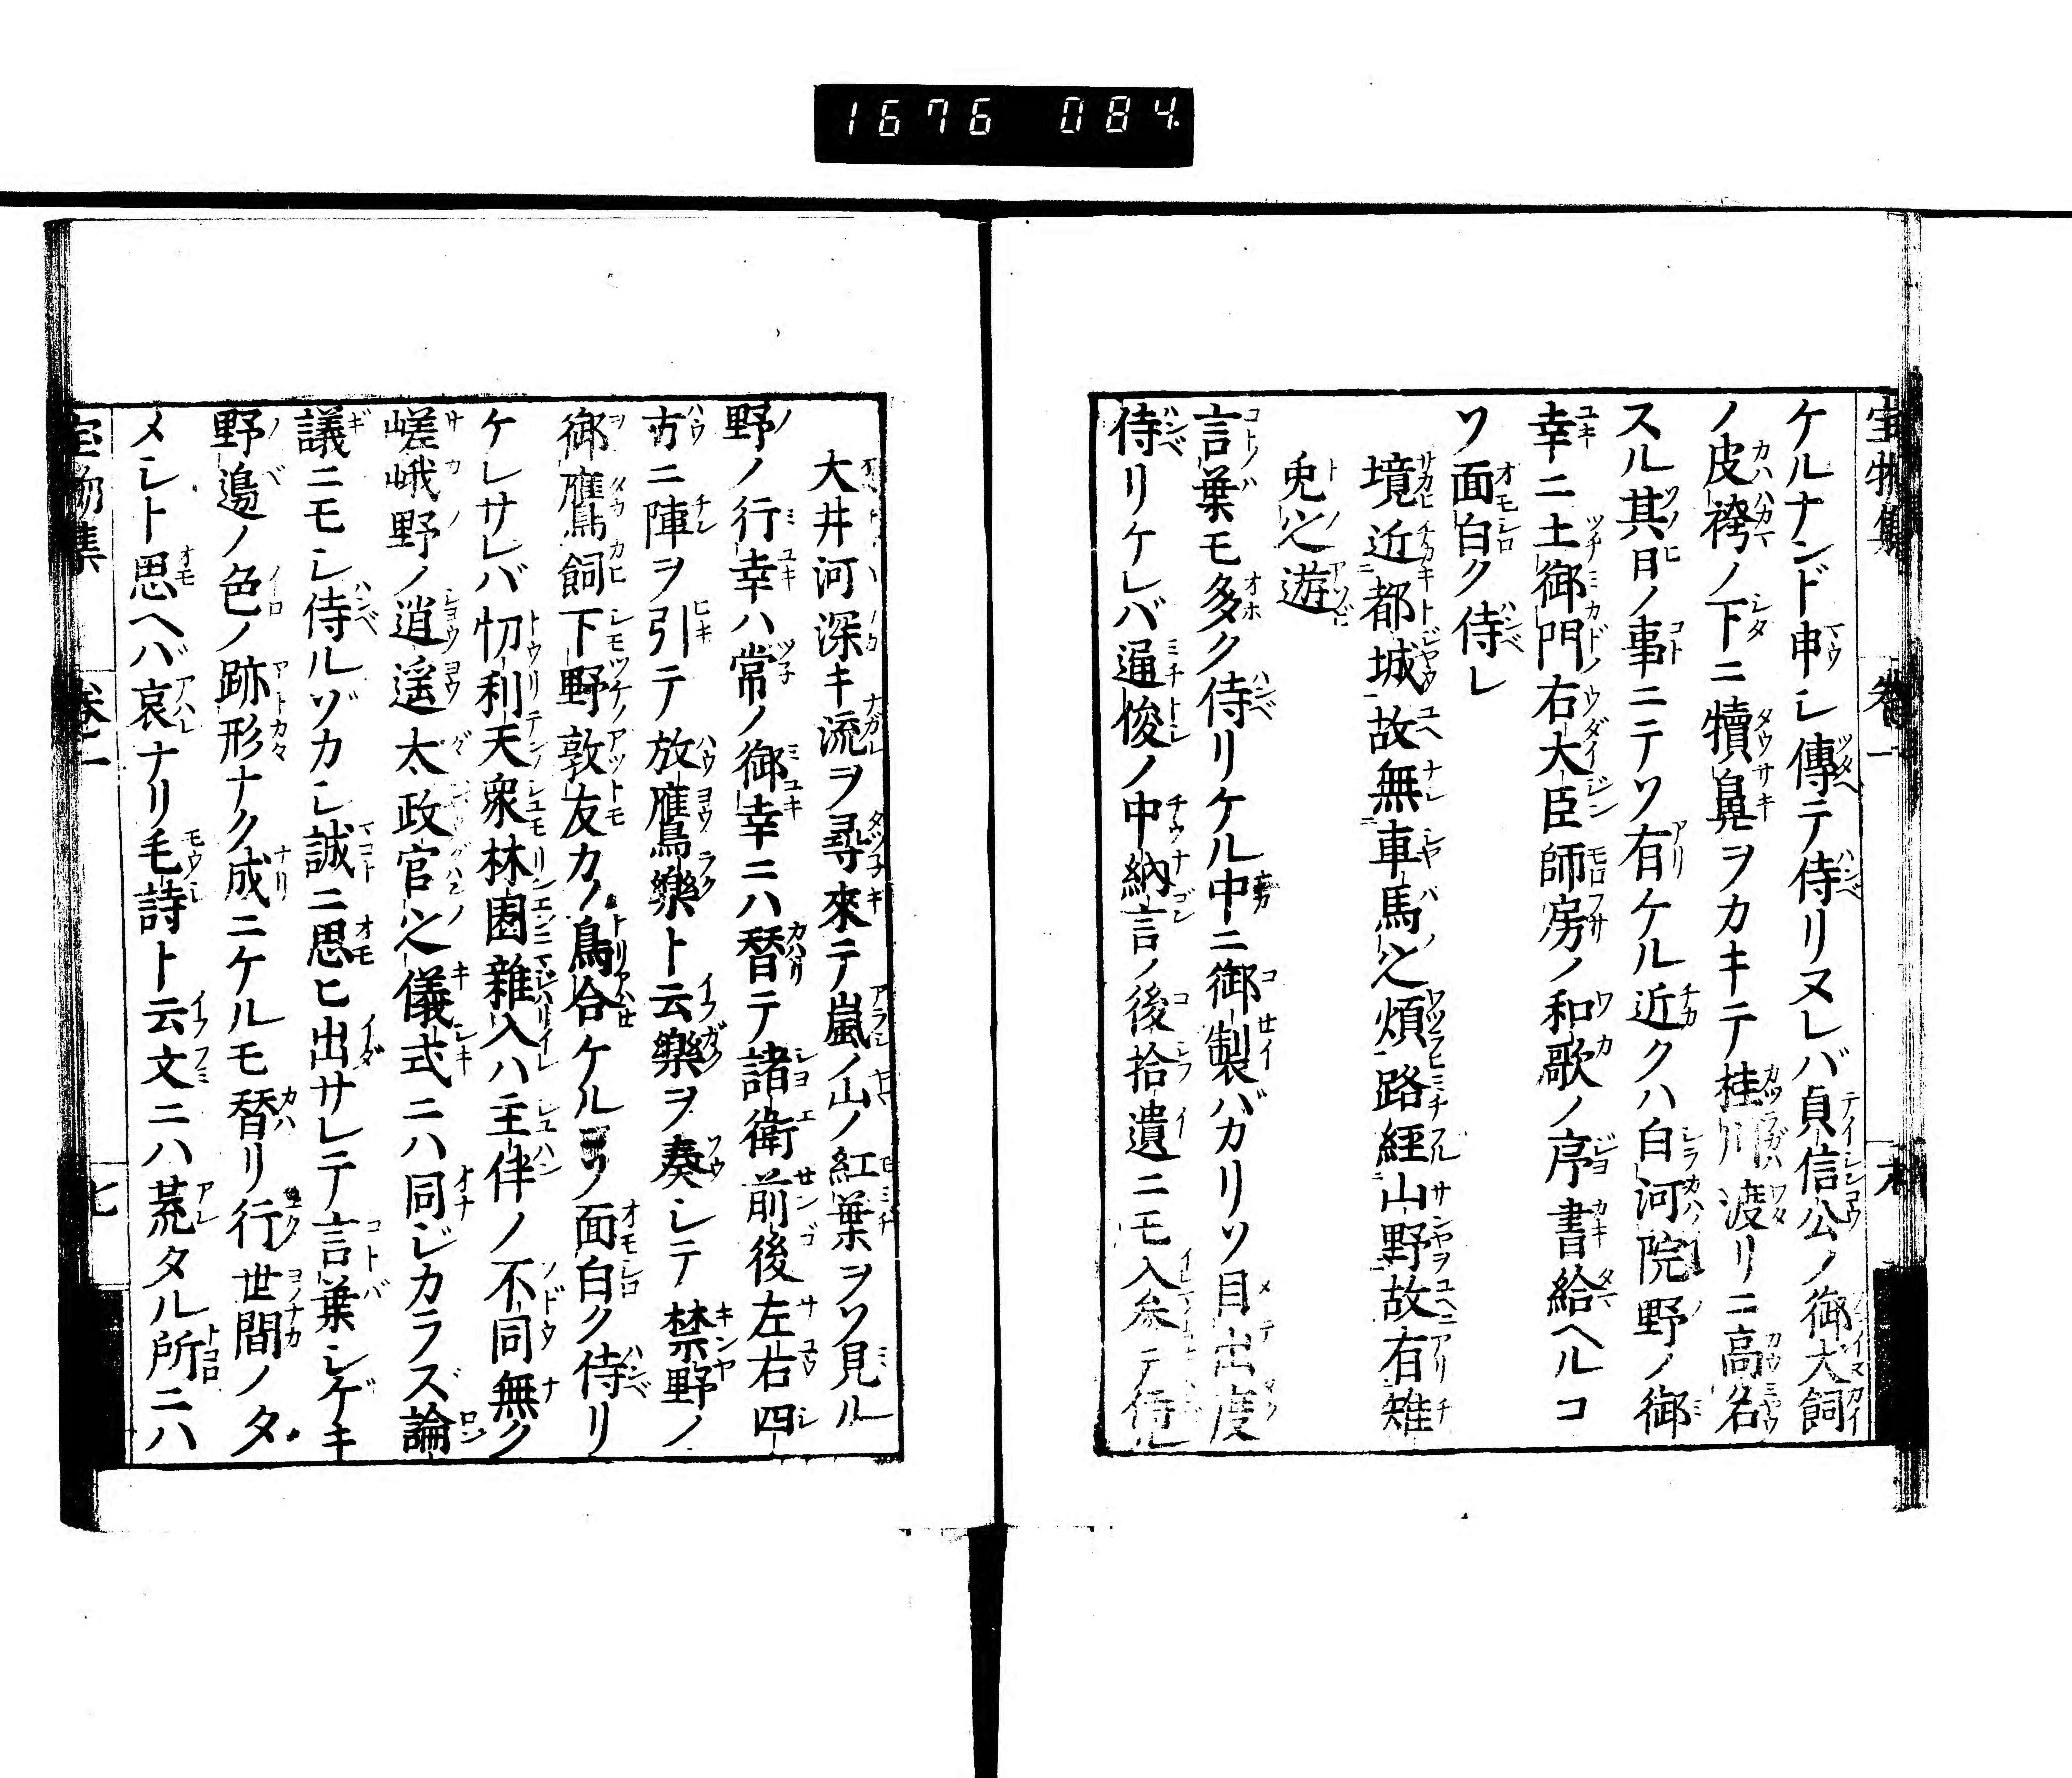 1676 084
ケルナンド申シ傳テ侍リヌレバ貞信公ノ御犬飼
ノ皮袴ノ下ニ犢鼻ヲカキテ桂川渡リニ高名
スル其日ノ事ニテソ有ケル近クハ白河院野ノ御
幸ニ土御門右大臣師房ノ和歌ノ序書給ヘルコ
ソ面白ク侍レ
境近都城故無車馬之煩路経山野故有雉
兎之遊
言葉モ多ク侍リケル中ニ御製バカリソ目出度
侍リケレバ通俊ノ中納言ノ後拾遺ニモ入矣テ侍ル
大井河深キ流ヲ尋來テ嵐ノ山ノ紅葉ヲソ見ル
野ノ行幸ハ常ノ御幸ニハ替テ諸衛前後左右四
方ニ陣ヲ引テ放鷹樂ト云樂ヲ奏シテ禁野ノ
御鷹飼下野敦友カノ鳥合ケルソ面白ク侍リ
ケレサレバ忉利天衆林園雜入ハ主伴ノ不同無ク
嵯峨野ノ逍遥太政官之儀式ニハ同ジカラズ論
議ニモシ侍ルゾカシ誠ニ思ヒ出サレテ言葉シゲキ
野邊ノ色ノ跡形ナク成ニケルモ替リ行世間ノタ
メシト思ヘバ哀ナリ毛詩ト云文ニハ荒タル所ニハ
宝物集 卷一 七